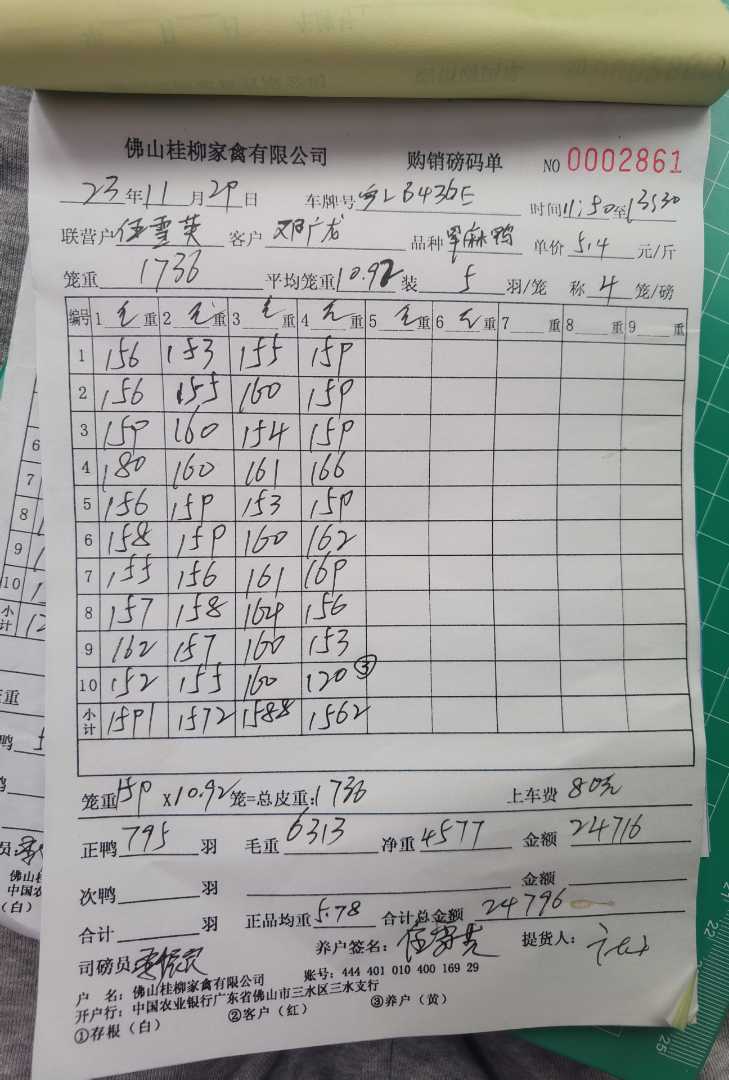 佛山桂柳家禽有限公司 购销磅码单 NO 0002861
23年11月29日 车牌号 粤LB436E 时间11:50至13:30
联营户 伍雪英 客户 邓广龙 品种 单麻鸭 单价 5.4 元/斤
笼重 1736 平均笼重 10.92 装 5 羽/笼 称 4 笼/磅
编号 1 毛 重 2 毛 重 3 毛 重 4 毛 重 5 毛 重 6 毛 重 7 重 8 重 9 重
1 156 153 155 159
2 156 155 160 159
3 159 160 154 159
4 180 160 161 166
5 156 159 153 159
6 158 159 160 162
7 155 156 161 169
8 157 158 164 156
9 162 157 160 153
10 152 155 160 120 ③
小计 1591 1572 1588 1562
笼重 159 x 10.92 笼=总皮重: 1736 上车费 80元
正鸭 795 羽 毛重 6313 净重 4577 金额 24716
次鸭 羽 金额
合计 羽 正品均重 5.78 合计总金额 24796
司磅员 养户签名: 提货人:
户 名: 佛山桂柳家禽有限公司 账号: 444 401 010 400 169 29
开户行: 中国农业银行广东省佛山市三水区三水支行
①存根（白） ②客户（红） ③养户（黄）
6
7
8
9
10
小计